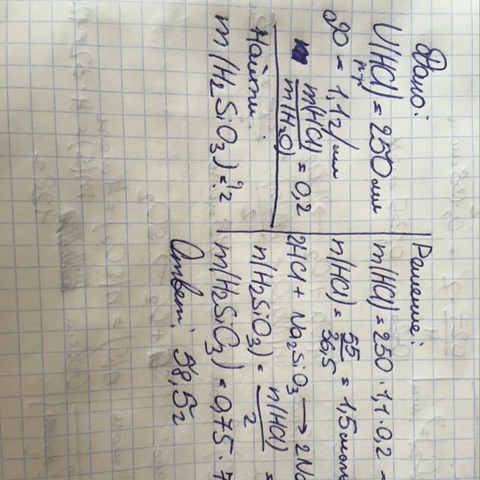 Дано:
V(HCl) = 250 мл
р-р
ρ = 1,1 г/мл
m(HCl)
m(H₂O) = 0,2
Найти:
m(H₂SiO₃) = ?г
Решение:
m(HCl) = 250 · 1,1 · 0,2 -
n(HCl) = 55/36,5 = 1,5 моль
2HCl + Na₂SiO₃ → 2Na
n(H₂SiO₃) = n(HCl)/2 =
m(H₂SiO₃) = 0,75 · 7
Ответ: 58,5г